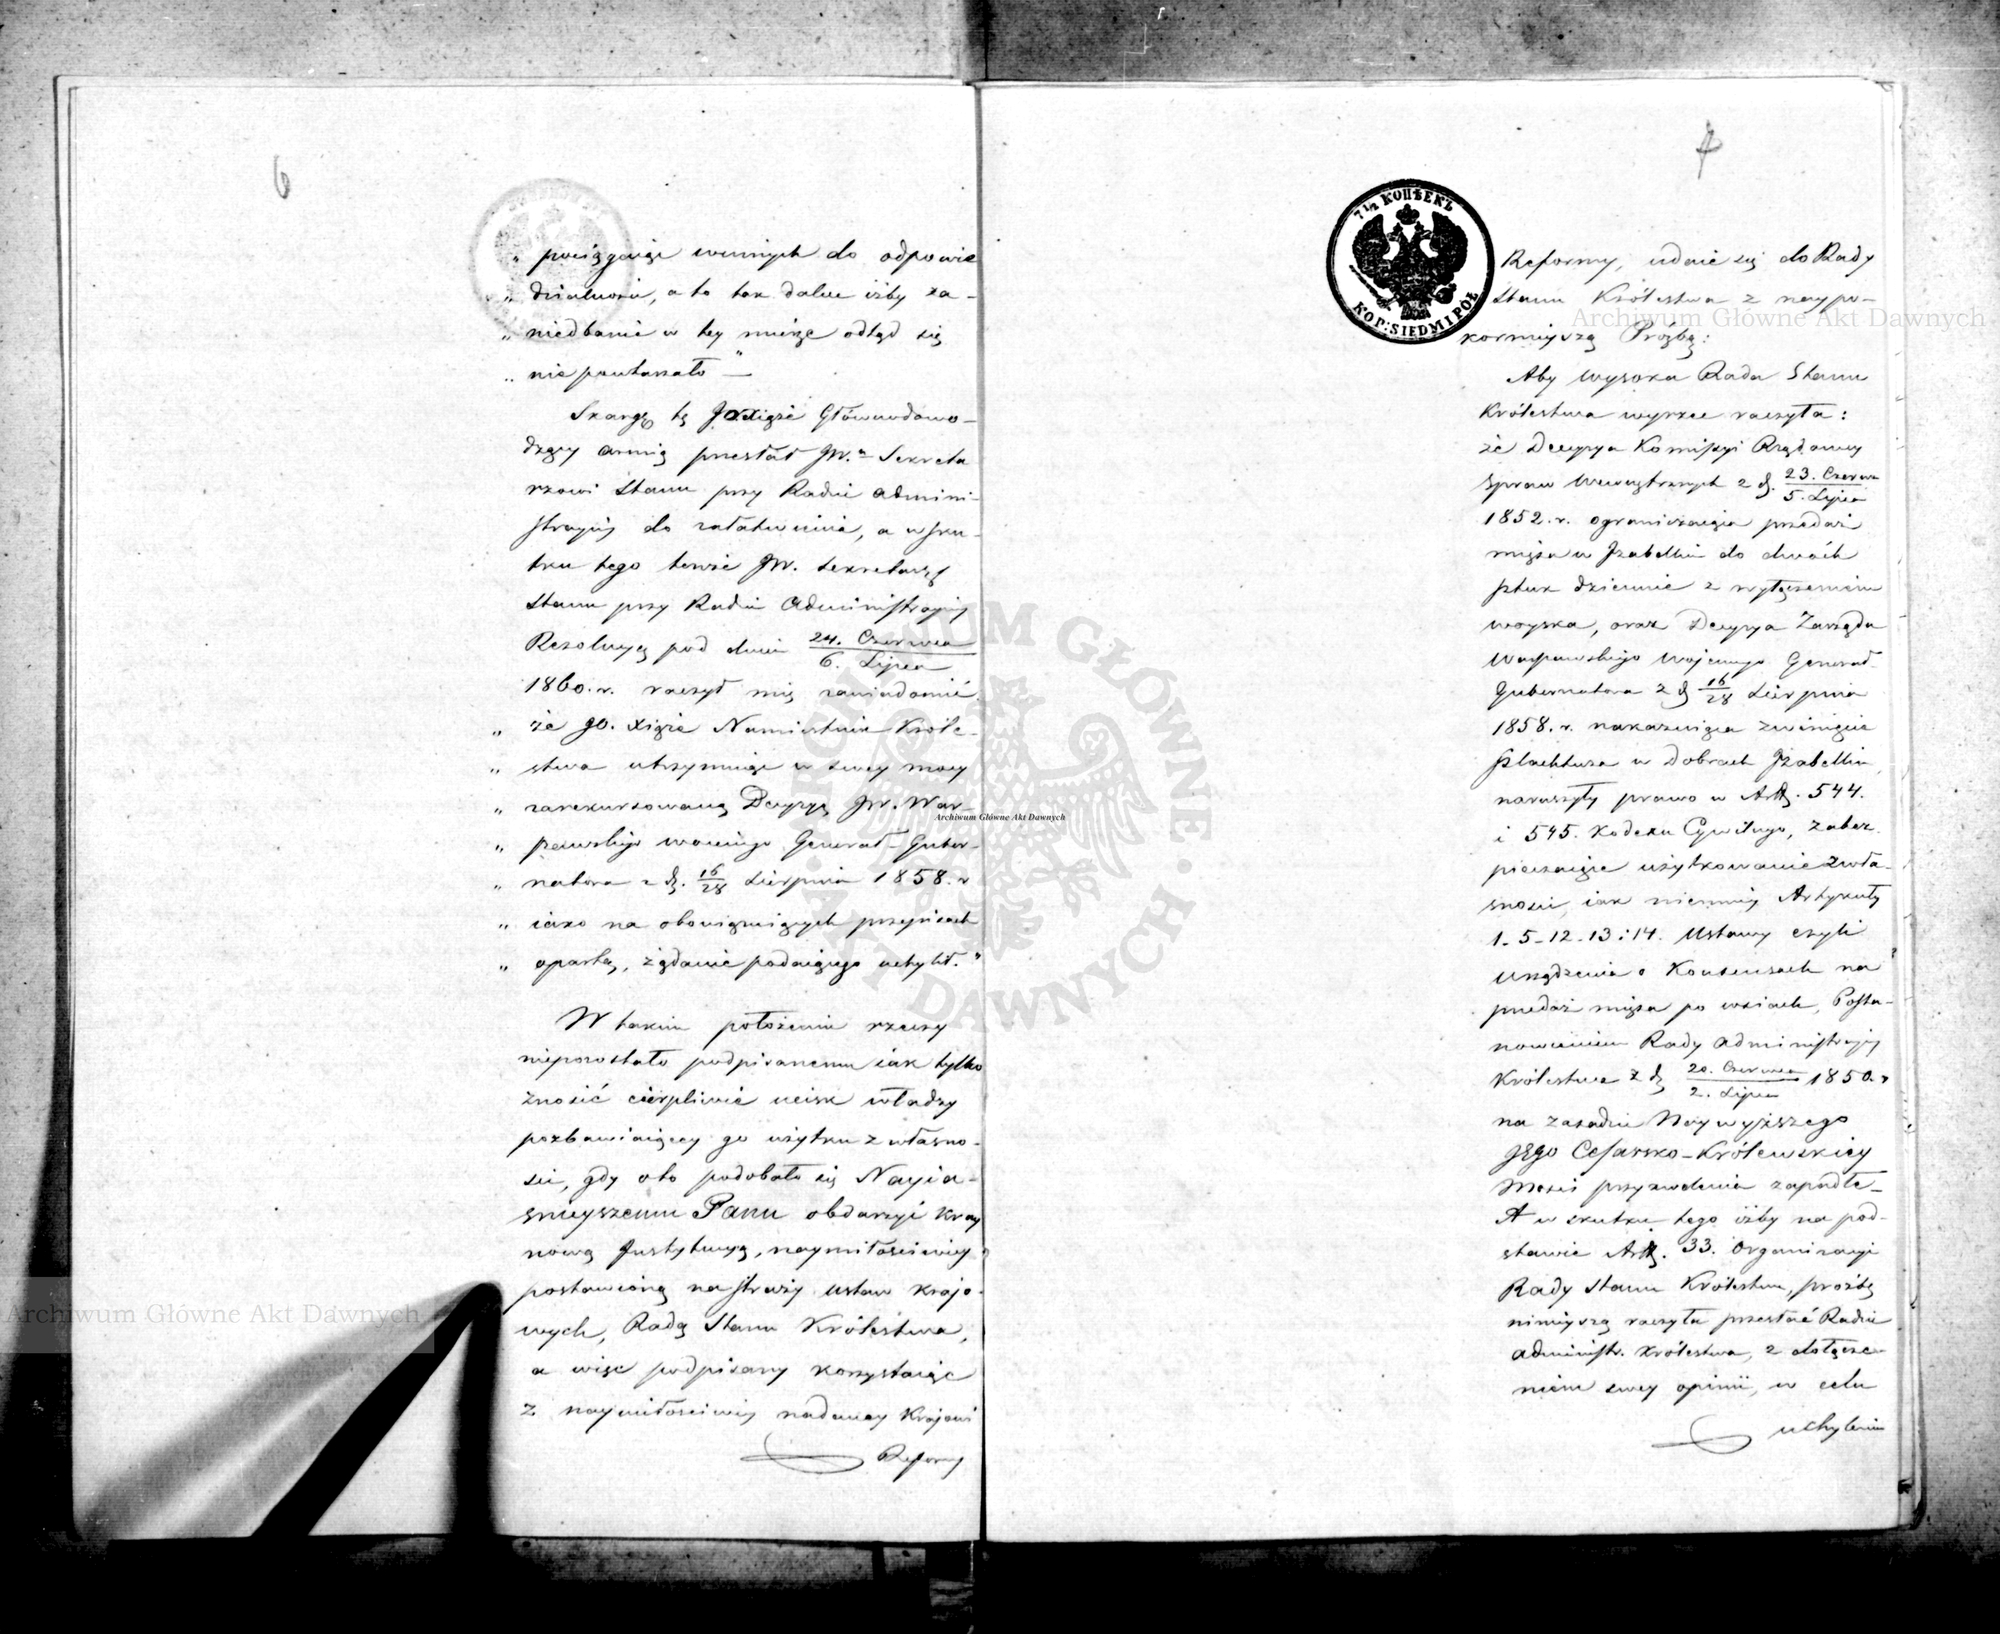 6
„ pociągając winnych do odpowie
„ dzialności, a to tak dalece iżby za-
„ niedbanie w tey mierze odtąd się
„ nie powtarzało"—
Skargę tę JO Xiąże Głównodowo-
dzący armią przesłał JW.u Sekreta
rzowi Stanu przy Radzie admini-
stracyiny do załatwienia, a w sku-
tku tego tenże JW. Sekretarz
Stanu przy Radzie Administracyiny
Rezolucyą pod dniem 24. Czerwca
6. Lipca
1860. r. raczył mię zawiadomić
„ że JO. Xiąże Namiestnik Króle-
„ stwa utrzymując w swey mocy
„ zarekursowaną Decyzyą JW. War-
„ szawskiego woiennego Generał-Guber-
„ natora z d. 16/28 Sierpnia 1858. r
„ iako na obowiązuiących przepisach
„ opartą, żądanie podaiącego uchylił."
W takim położeniu rzeczy
niepozostało podpisanemu iak tylko
znosić cierpliwie ucisk władzy
pozbawiaiącey go użytku z własno-
ści, gdy oto podobało się Nayia-
śnieyszemu Panu obdarzyć kray
nową Instytucyą, naymiłościwiey
postawioną na straży ustaw krajo-
wych, Radą Stanu Królestwa,
a więc podpisany korzystaiąc
z naymiłościwiey nadaney Krajowi
Reformy
7
7 1/2 КОПѢЕКЪ
KOP: SIEDMIPÓŁ
Reformy, udaie się do Rady
Stanu Królestwa z naypo-
kornieyszą Prózbą:
Aby wysoka Rada Stanu
Królestwa wyrzec raczyła:
że Decyzya Komissyi Rządowey
Spraw Wewnętrznych z d. 23. Czerwca
5. Lipca
1852. r. ograniczaiąca przedaż
mięsa w Izabellin do dwóch
sztuk dziennie z wyłączeniem
woyska, oraz Decyzya Zarządu
Warszawskiego Wojennego Generał-
Gubernatora z d 16/28 Sierpnia
1858. r. nakazuiąca zwinięcie
Szlachtuza w Dobrach Izabellin,
naruszyły prawo w Artt. 544.
i 545. Kodexu Cywilnego, zabez-
pieczaiące użytkowanie z wła-
sności, iak niemniey Artykuły
1. 5-12-13 i 14. Ustawy czyli
Urządzenia o Konsensach na
przedaż mięsa po wsiach, Posta-
nowieniem Rady Administracyiny
Królestwa z d 20. Czerwca 1850. r
2. Lipca
na zasadzie Naywyższego
JEgo Cesarsko-Królewskiey
Mości przyzwolenia zapadłe-
A w skutku tego iżby na pod-
stawie Artt. 33. Organizacyi
Rady Stanu Królestwa, proźbę
ninieyszą raczyła przesłać Radzie
Administr. Królestwa, z dołącze-
niem swey opinii, w celu
uchylenia
Archiwum Główne Akt Dawnych
Archiwum Główne Akt Dawnych
Archiwum Główne Akt Dawnych
ARCHIWUM GŁÓWNE · AKT DAWNYCH ·